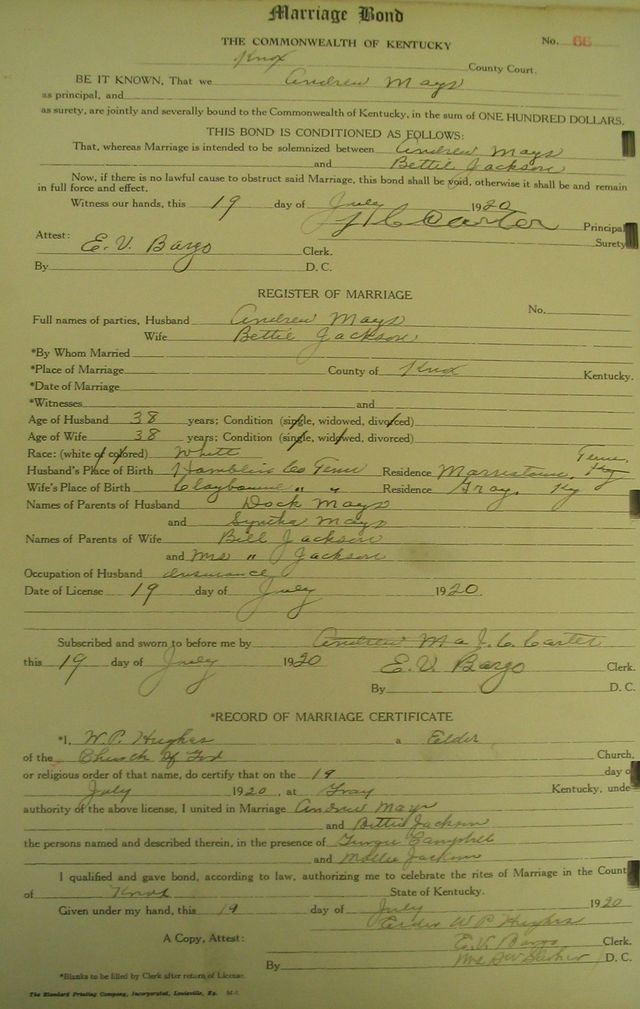 Marriage Bond
THE COMMONWEALTH OF KENTUCKY No. 66
Knox County Court.
BE IT KNOWN, That we Andrew Mays
as principal, and
as surety, are jointly and severally bound to the Commonwealth of Kentucky, in the sum of ONE HUNDRED DOLLARS.
THIS BOND IS CONDITIONED AS FOLLOWS:
That, whereas Marriage is intended to be solemnized between Andrew Mays
and Bettie Jackson
Now, if there is no lawful cause to obstruct said Marriage, this bond shall be void, otherwise it shall be and remain
in full force and effect.
Witness our hands, this 19 day of July 1920
J C Carter Principal
Surety
Attest: E. V. Bargo Clerk.
By D. C.
REGISTER OF MARRIAGE
No.
Full names of parties, Husband Andrew Mays
Wife Bettie Jackson
*By Whom Married
*Place of Marriage County of Knox Kentucky.
*Date of Marriage
*Witnesses and
Age of Husband 38 years; Condition (single, widowed, divorced)
Age of Wife 38 years; Condition (single, widowed, divorced)
Race: (white or colored) White
Husband's Place of Birth Hamblin Co Tenn Residence Tenn. Ky
Wife's Place of Birth Claybourne " " Residence Gray, Ky
Names of Parents of Husband Dock Mays
and Syntha Mays
Names of Parents of Wife Bill Jackson
and Mrs " Jackson
Occupation of Husband Insurance
Date of License 19 day of July 1920.
Subscribed and sworn to before me by Andrew Ma J. C. Carter
this 19 day of July 1920 E. V. Bargo Clerk.
By D. C.
*RECORD OF MARRIAGE CERTIFICATE
*I, W. P. Hughes a Elder
of the Church of God Church,
or religious order of that name, do certify that on the 19 day o
July 1920, at Gray Kentucky, unde
authority of the above license, I united in Marriage Andrew Mays
and Bettie Jackson
the persons named and described therein, in the presence of Campbell
and Mollie Jackson
I qualified and gave bond, according to law, authorizing me to celebrate the rites of Marriage in the Count
of Knox State of Kentucky.
Given under my hand, this 19 day of July 1920
Elder W P Hughes
A Copy, Attest: E. V. Bargo Clerk.
By Mrs D. C.
*Blanks to be filled by Clerk after return of License.
The Standard Printing Company, Incorporated, Louisville, Ky.